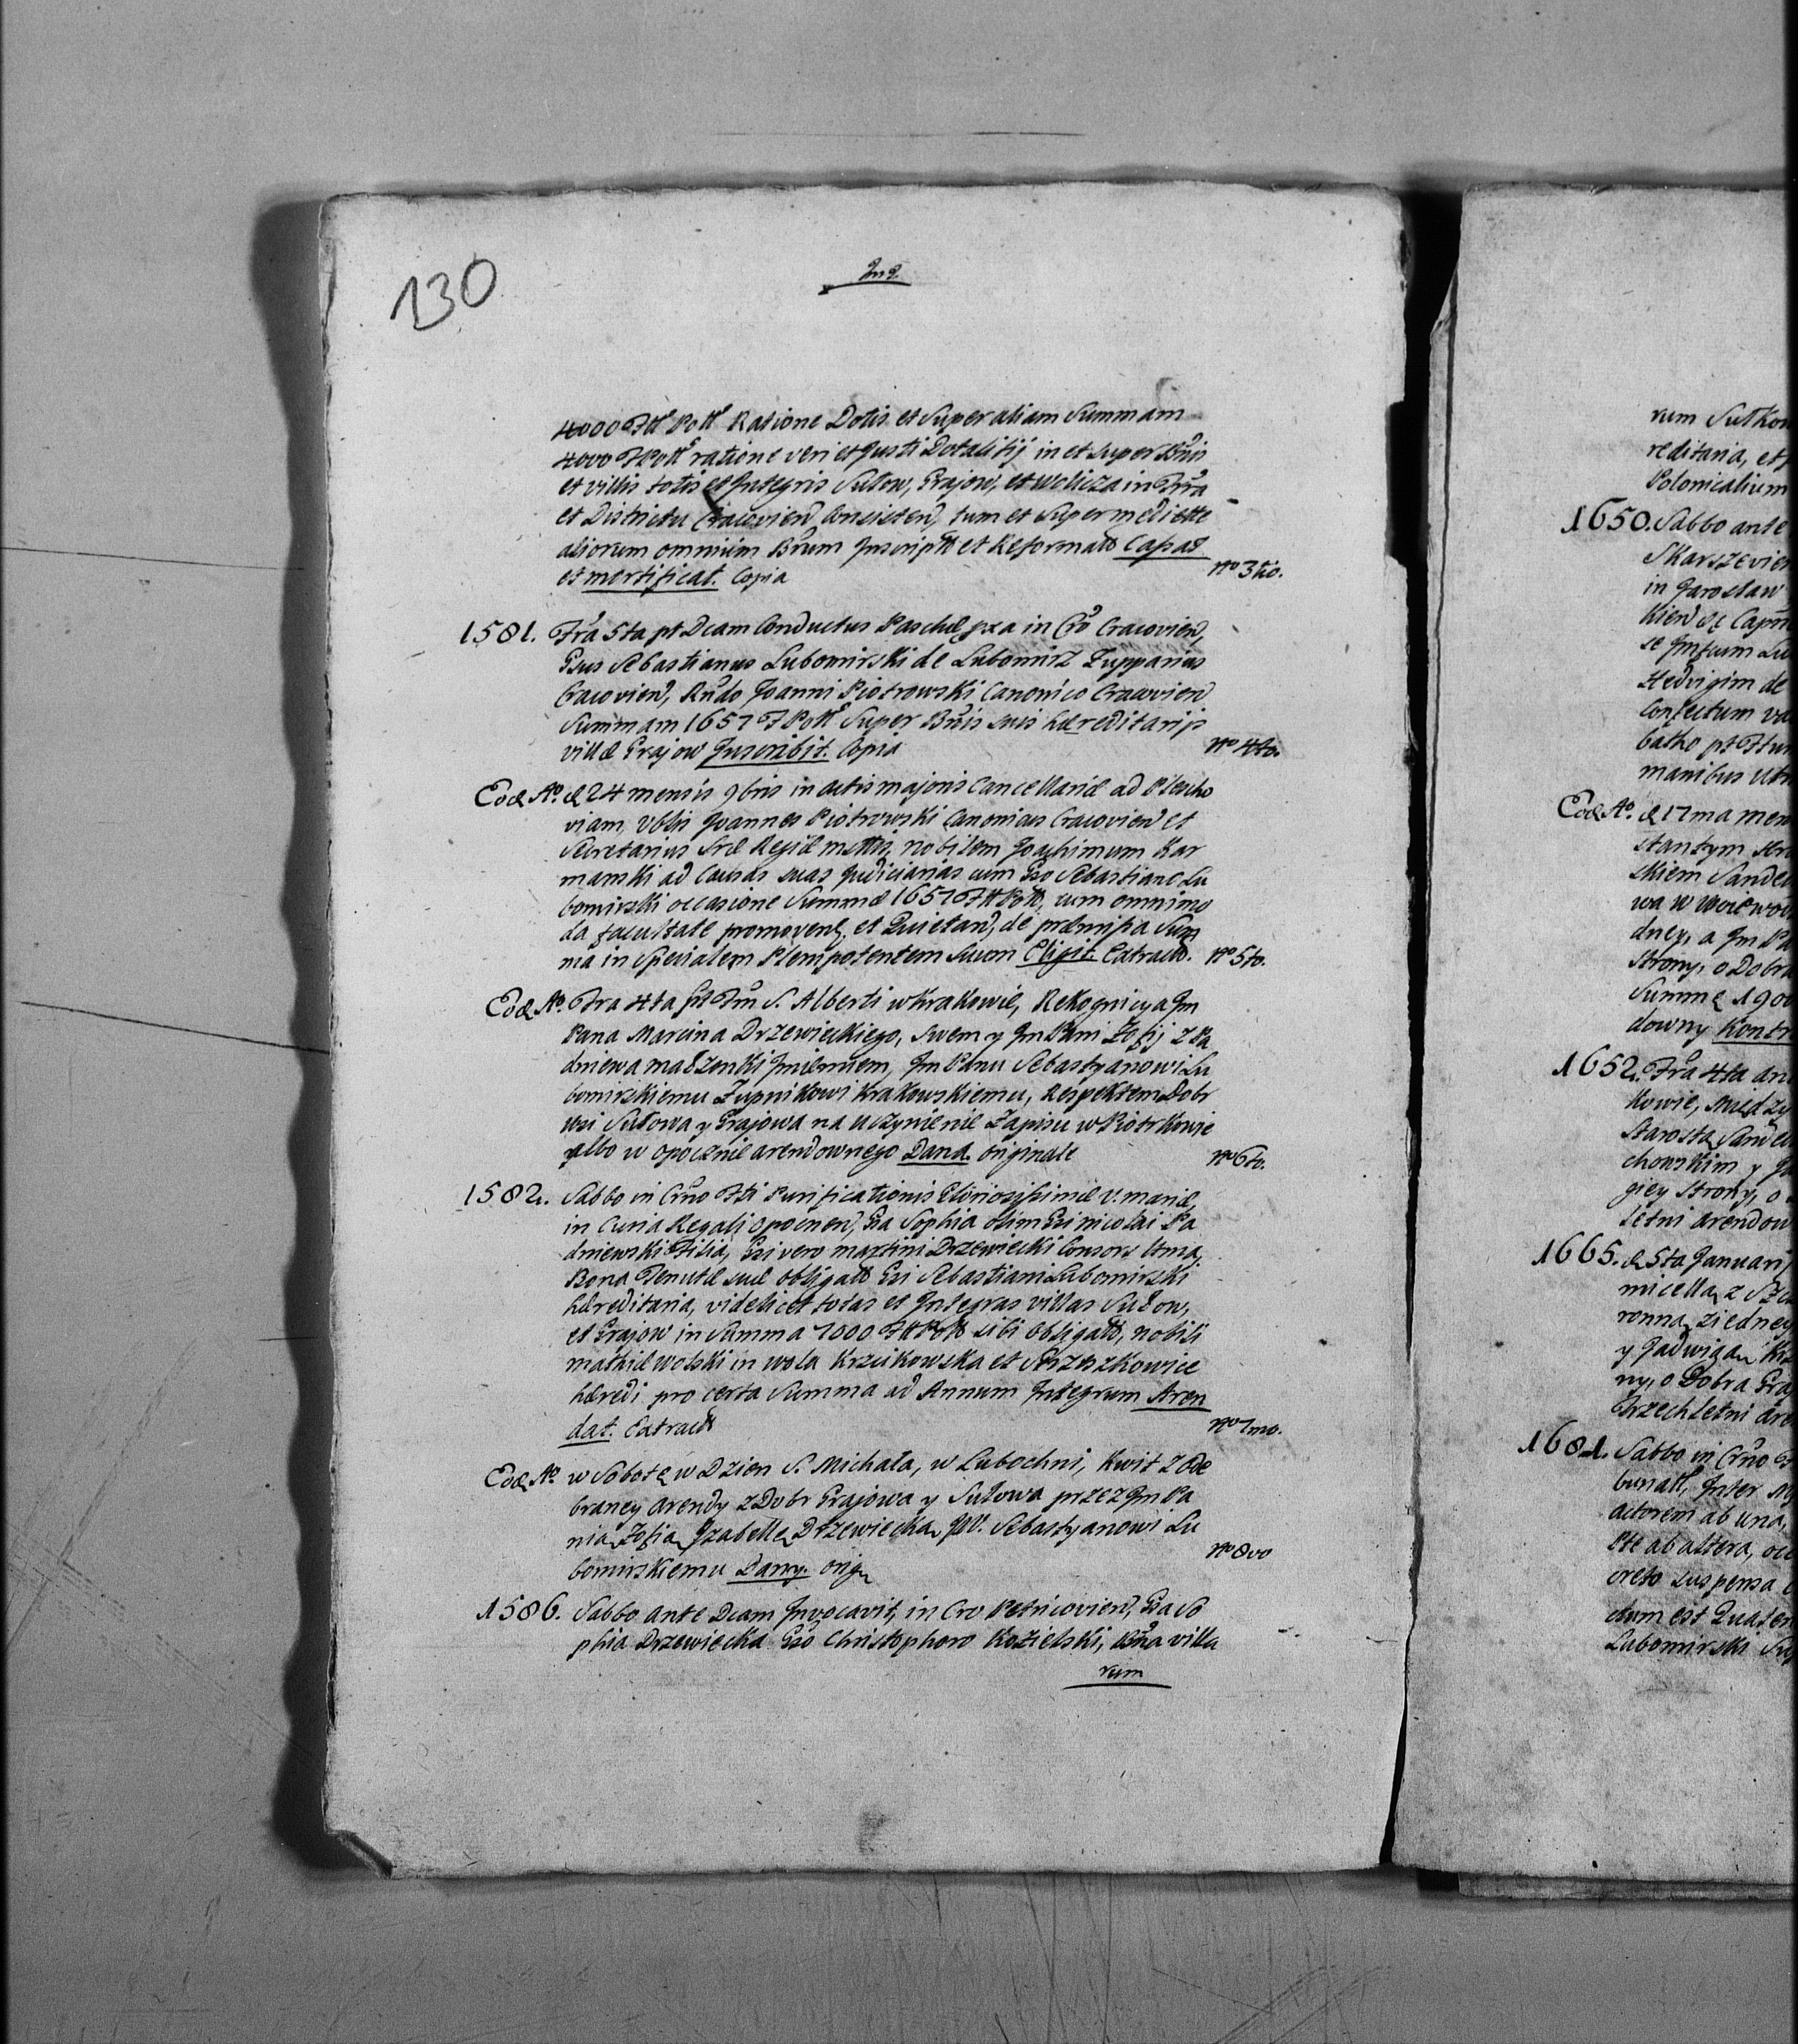 130
4000 Ftt Pott Ratione Dotis et Super aliam Summam
4000 F Pott ratione veri et Justi Dotalitij in et super Bnis
et villis totis et Integris Sułow, Grajow, et Wolicza in Tra
et Districtu Cracovien Consisten, tum et Super mediette
aliorum omnium Bnrum Inscriptt et Reformatt Capat
et mortificat. Copia
No 3tio.
1581. Fra 5ta pt Dcam Conductus Paschæ pxa in Cro Cracovien,
Gsus Sebastianus Lubomirski de Lubomirz Zupparius
Cracovien, Rndo Joanni Piotrowski Canonico Cracovien
Summam 1657 F Pott Super Bnis suis hæreditarijs
villæ Grajow Inscribit. Copia
No 4to.
Eod Ao. d 24 mensis 9bris in Actis majoris Cancellariæ ad
viam, Vblis Joannes Piotrowski Canonicus Cracovien et
Secretarius Sræ Regiæ mttis, nobilem Joachimum Kar
manski ad Causas suas Judiciarias cum Gso Sebastiano Lu
bomirski occasione Summæ 1657 Ftt Pott, cum omnimo
da facultate promoven, et Quietand, de præmissa Sum
ma in Specialem Plenipotentem Suum Eligit. Extractt.
No 5to.
Eod Ao. Fra 4ta pt Fm S. Alberti w Krakowie, Rekognicya Jm
Pana Marcina Drzewieckiego, Swem y Jm Pani Zofij z Pa
dniewa małżonki Jmieniem, Jm Panu Sebastyanowi Lu
bomirskiemu Żupnikowi Krakowskiemu, Respektem Dobr
wsi Sułowa y Grajowa na uczynienie Zapisu w Piotrkowie
albo w Opocznie arendownego Dana. originale
No 6to.
1582. Sabbo in Crno Fti Purificationis Gloriosissimæ V. mariæ,
in Curia Regali Opocnen, Gsa Sophia olim Gsi nicolai Pa
dniewski Filia, Gsi vero martini Drzewiecki Consors ltma,
Bona Tenutæ suæ obligatt Gsi Sebastiani Lubomirski
hæreditaria, videlicet totas et Integras villas Sułow,
et Grajow in Summa 7000 Ftt Pott sibi obligatt, nobili
mathiæ wolski in wola Krzcikowska et Strzeszkowice
hæredi pro certa Summa ad Annum Integrum Aren
dat. Extractt
No 7mo.
Eod Ao. w Sobotę w Dzien S. Michała, w Lubochni, Kwit z Ode
braney arendy z Dobr Grajowa y Sułowa przez Jm Pa
nią Zofią Jzabellę Drzewiecką JW. Sebastyanowi Lu
bomirskiemu Dany. orig
No 8vo
1586. Sabbo ante Dcam Invocavit, in Cro Petricovien, Gsa So
phia Drzewiecka Gso Christophoro Kozielski, Bna villa
rum
rum Sułkow
reditaria, et
Polonicalium
1650. Sabbo ante
Skarszevien
in Jarosław
Hedvigim de
manibus
Eod Ao. d 17ma men
skiem Sande
dney, a Jm Pa
Strony, o Dobra
Summę 1900
downy Kontr
1652. Fra 4ta an
kowie, między
Starostą Sande
chowskim y
giey Strony, o
letni arendow
1665. d 5ta Januarij
ronną ziedney
y Jadwigą
ny, o Dobra Gra
Trzechletni are
1681. Sabbo in Crno
bunatt, Inter
actorem ab una,
Pte ab altera, occ
creto suspensa
ctum est Quaten
Lubomirski